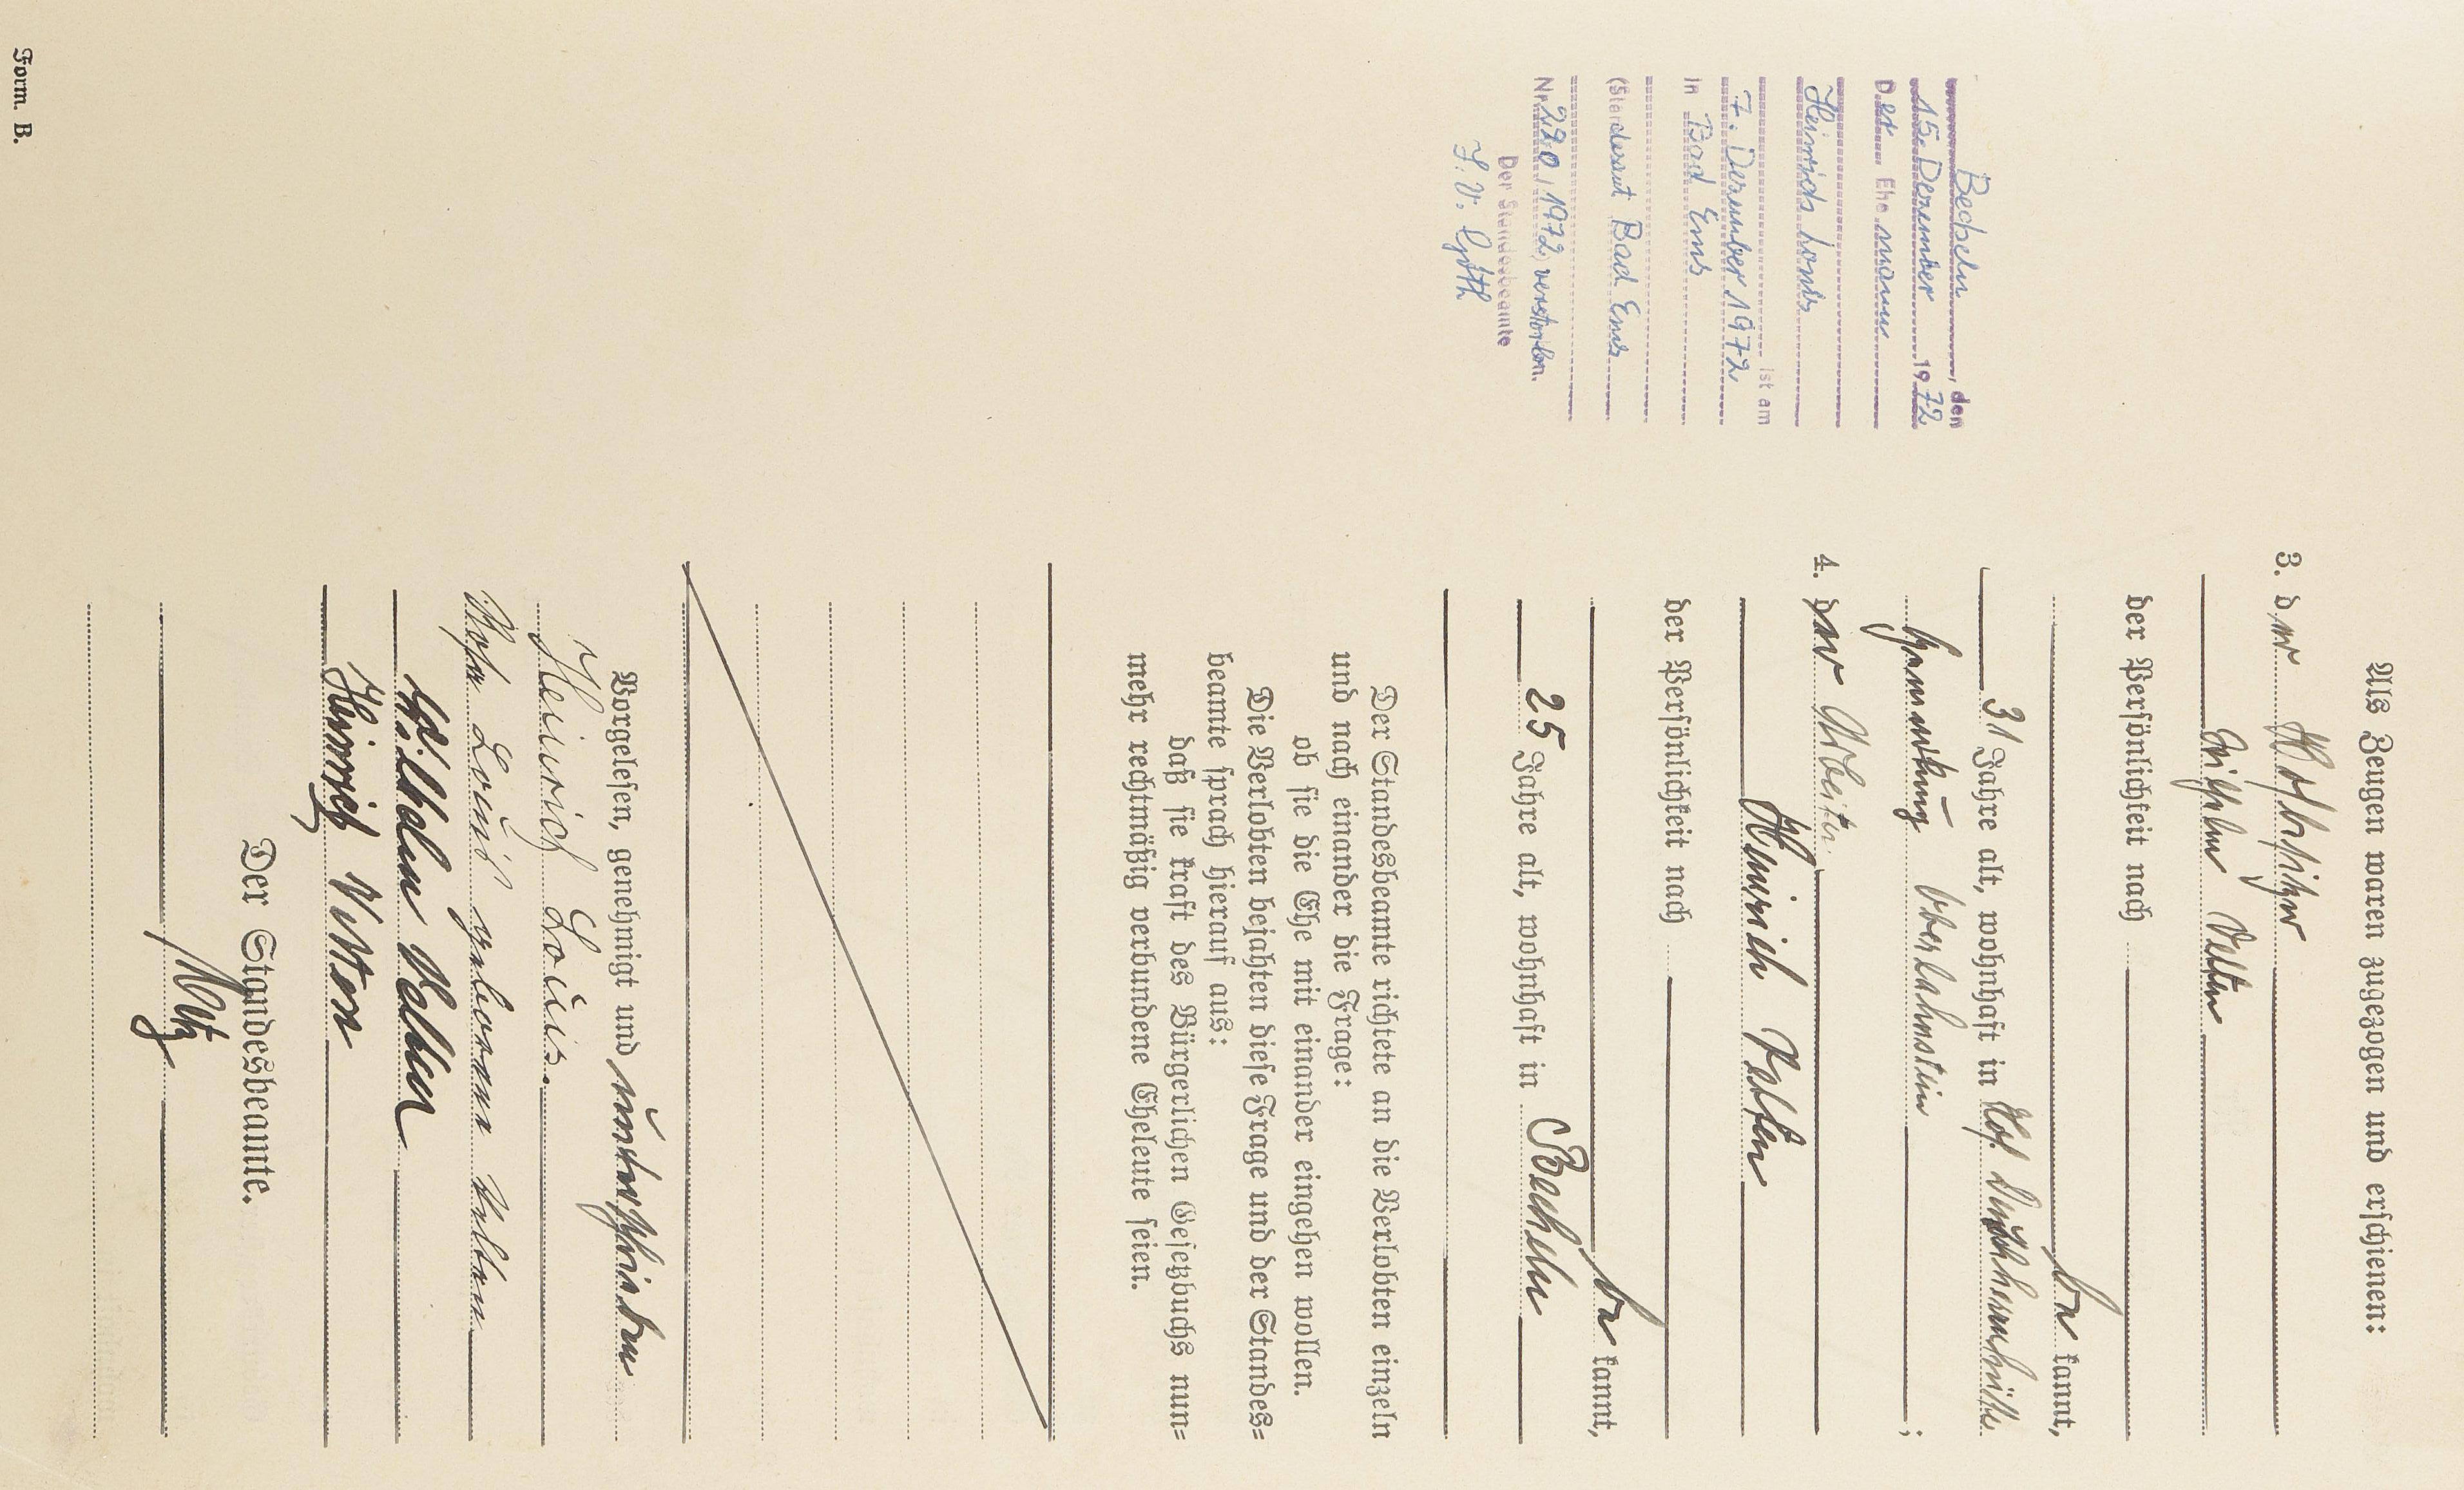 Als Zeugen waren zugezogen und erschienen:
3. der Hofbesitzer
Wilhelm Velten
der Persönlichkeit nach
be kannt,
31 Jahre alt, wohnhaft in Hof
Gemarkung Oberlahnstein ;
4. der Arbeiter
Heinrich Velten
der Persönlichkeit nach
be kannt,
25 Jahre alt, wohnhaft in Becheln
Der Standesbeamte richtete an die Verlobten einzeln
und nach einander die Frage:
ob sie die Ehe mit einander eingehen wollen.
Die Verlobten bejahten diese Frage und der Standes=
beamte sprach hierauf aus:
daß sie kraft des Bürgerlichen Gesetzbuchs nun=
mehr rechtmäßig verbundene Eheleute seien.
Vorgelesen, genehmigt und unterschrieben
Heinrich Louis.
Louis geborene Velten
Wilhelm Velten
Heinrich Velten
Der Standesbeamte.
Becheln, den
15. Dezember 1972
Der Ehemann
Heinrich Louis
ist am
7. Dezember 1972
in Bad Ems
(Standesamt Bad Ems
Nr. 290/1972) verstorben.
Der Standesbeamte
I. V.
Form. B.